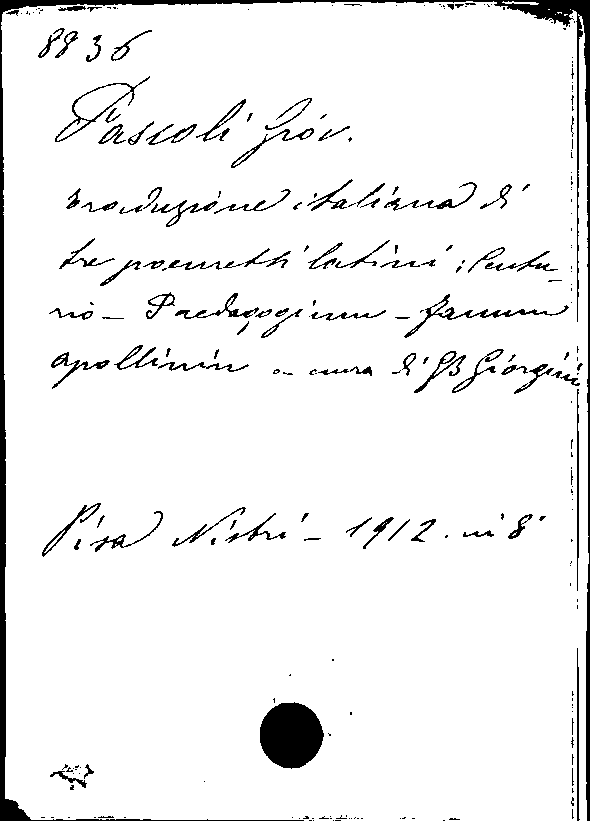 8836
Pascoli Giov.
Traduzione italiana di
tre poemetti latini: Centu-
rio - Paedagogium - Fanum
apollinin a cura di GB Giorgini
Pisa Nistri - 1912. in 8°